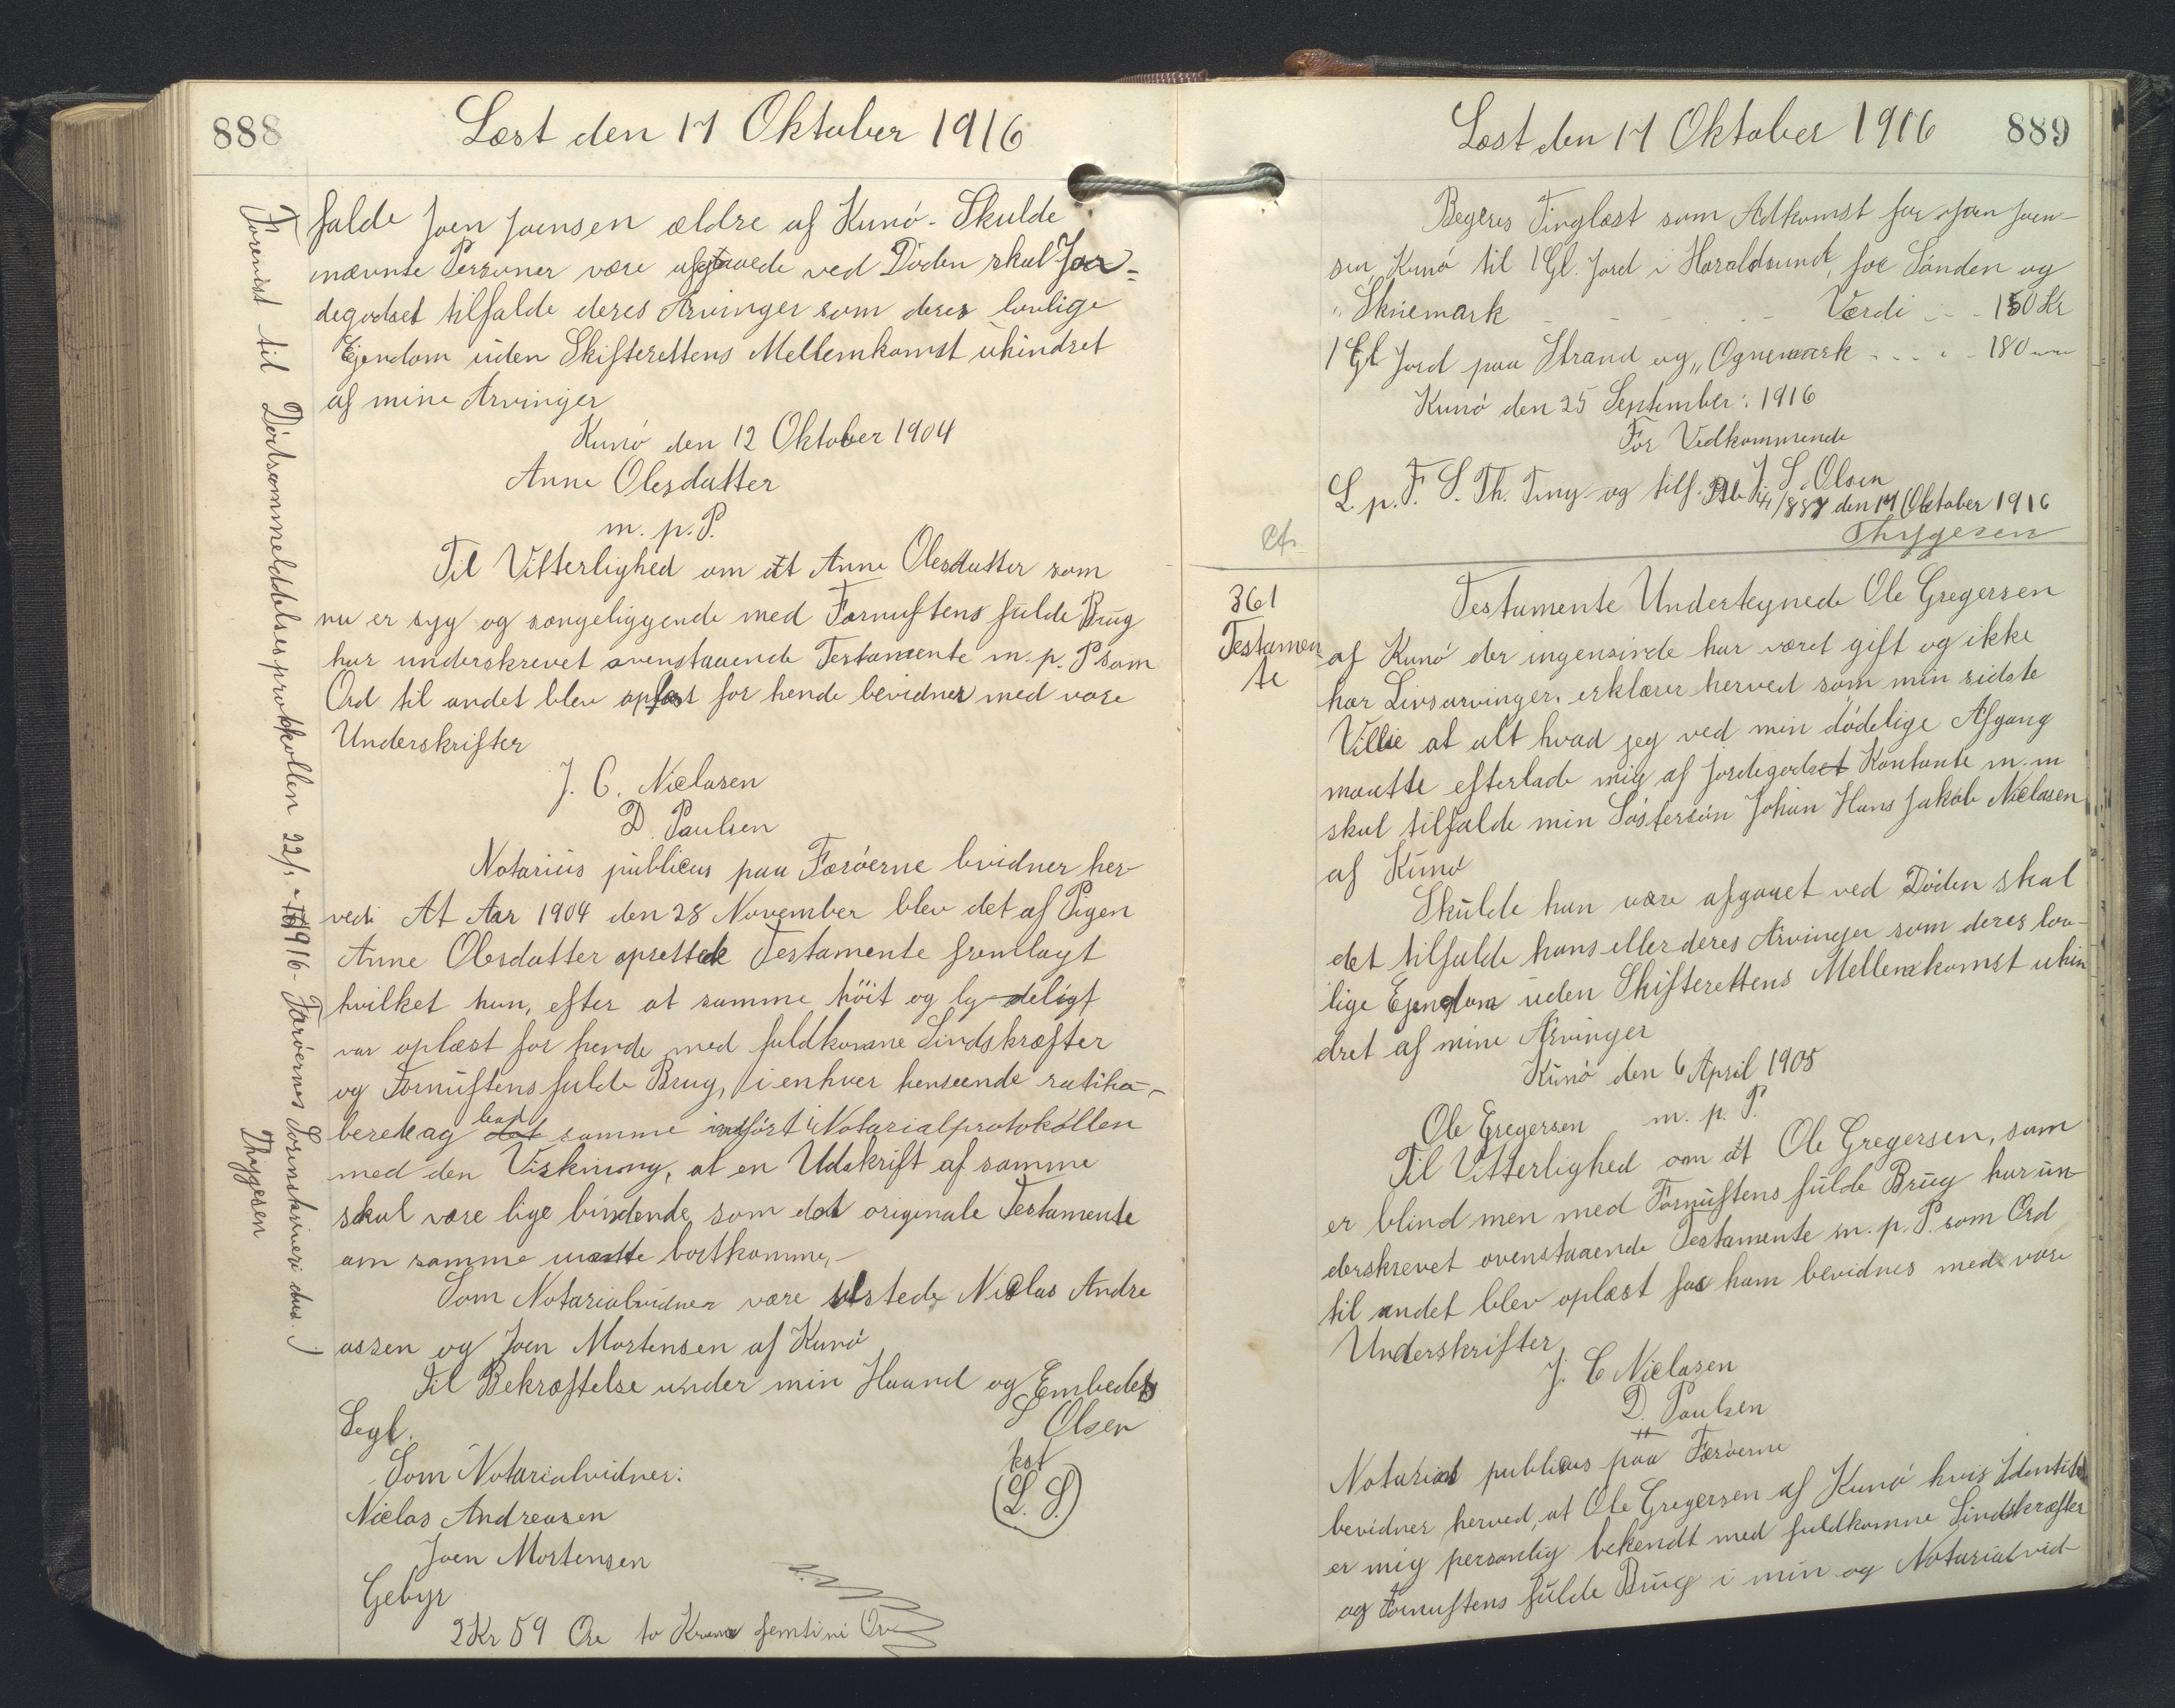 888
Læst den 17 Oktober 1916
falde Joen Joensen ældre af Kunö - Skulde
nævnte Personer være afgaaede ved Döden skal Jor=
degodset tilfalde deres Arvinger som deres lovlige
Ejendom uden Skifterettens Mellemkomst uhindret
af mine Arvinger
Kunö den 12 Oktober 1904
Anne Olesdatter
m. p. P.
Til Vitterlighed om at Anne Olesdatter som
nu er syg og sengeliggende med Fornuftens fulde Brug
har underskrevet ovenstaaende Testamente m. p. P som
Ord til andet blev oplæst for hende bevidner med vore
Underskrifter
J. C. Nielasen
D. Paulsen
Notarius publicus paa Færöerne bvidner her
ved: At Aar 1904 den 28 November blev det af Pigen
Anne Olesdatter oprettede Testamente fremlagt
hvilket hun, efter at samme höit og ly-deligt
var oplæst for hende med fuldkomne Sindskræfter
og Fornuftens fulde Brug, i enhver henseende ratiha-
berede og bad samme indfört i Notarialprotokollen
med den Virkning, at en Udskrift af samme
skal være lige bindende som det originale Testamente
om samme maatte bortkomme,-
Som Notarialvidner vare tilstede Nielas Andre
assen og Joen Mortensen af Kunö
Til Bekræftelse under min Haand og Embeds
Segl.
S Olsen
kst
(L. S.)
Som Notarialvidner:
Nielas Andreasen
Joen Mortensen
Gebyr
2 Kr 59 Öre to Kroner femtini Öre
Forevist til Dödsanmeldelsesprotokollen 22/1 - 1916 - Færöernes Sorenskriveri
Thygesen
Læst den 17 Oktober 1916
889
Begæres Tinglæst som Adkomst for Joen Joen-
sen, Kunö til 1 Gl. Jord i Haraldsund, for Sánden og
" Skriemark - - - - - Værdi - - - 150 Kr
1 Gl Jord paa Strand og „Ognemark - - - - - 180 -
Kunö den 25 September: 1916
For Vedkommende
J. S. Olsen
L. p. F. S. Th. Ting og tilf. /887 den 17 Oktober 1916
Thygesen
Cfr.
361
Testamen
te
Testamente Undertegnede Ole Gregersen
af Kunö der ingensinde har været gift og ikke
har Livsarvinger, erklærer herved som min sidste
Villie at alt hvad jeg ved min dödelige Afgang
maatte efterlade mig af Jordegodset Kontante m. m
skal tilfalde min Söstersön Johan Hans Jakob Nielasen
af Kunö
Skulde han være afgaaet ved Döden skal
det tilfalde hans eller deres Arvinger som deres lov-
lige Ejendom uden Skifterettens Mellemkomst uhin
dret af mine Arvinger
Kunö den 6 April 1905
Ole Gregersen m. p. P.
Til Vitterlighed om at Ole Gregersen, som
er blind men med Fornuftens fulde Brug har un-
derskrevet ovenstaaende Testamente m. p. P. som Ord
til andet blev oplæst for ham bevidnes med vore
Underskrifter
J. C Nielasen
D. Paulsen
Notarius publicus paa Færöerne
bevidner herved, at Ole Gregersen af Kunö hvis Identitet
er mig personlig bekendt med fuldkomne Sindskræfter
og Fornuftens fulde Brug i min og Notarialvid-